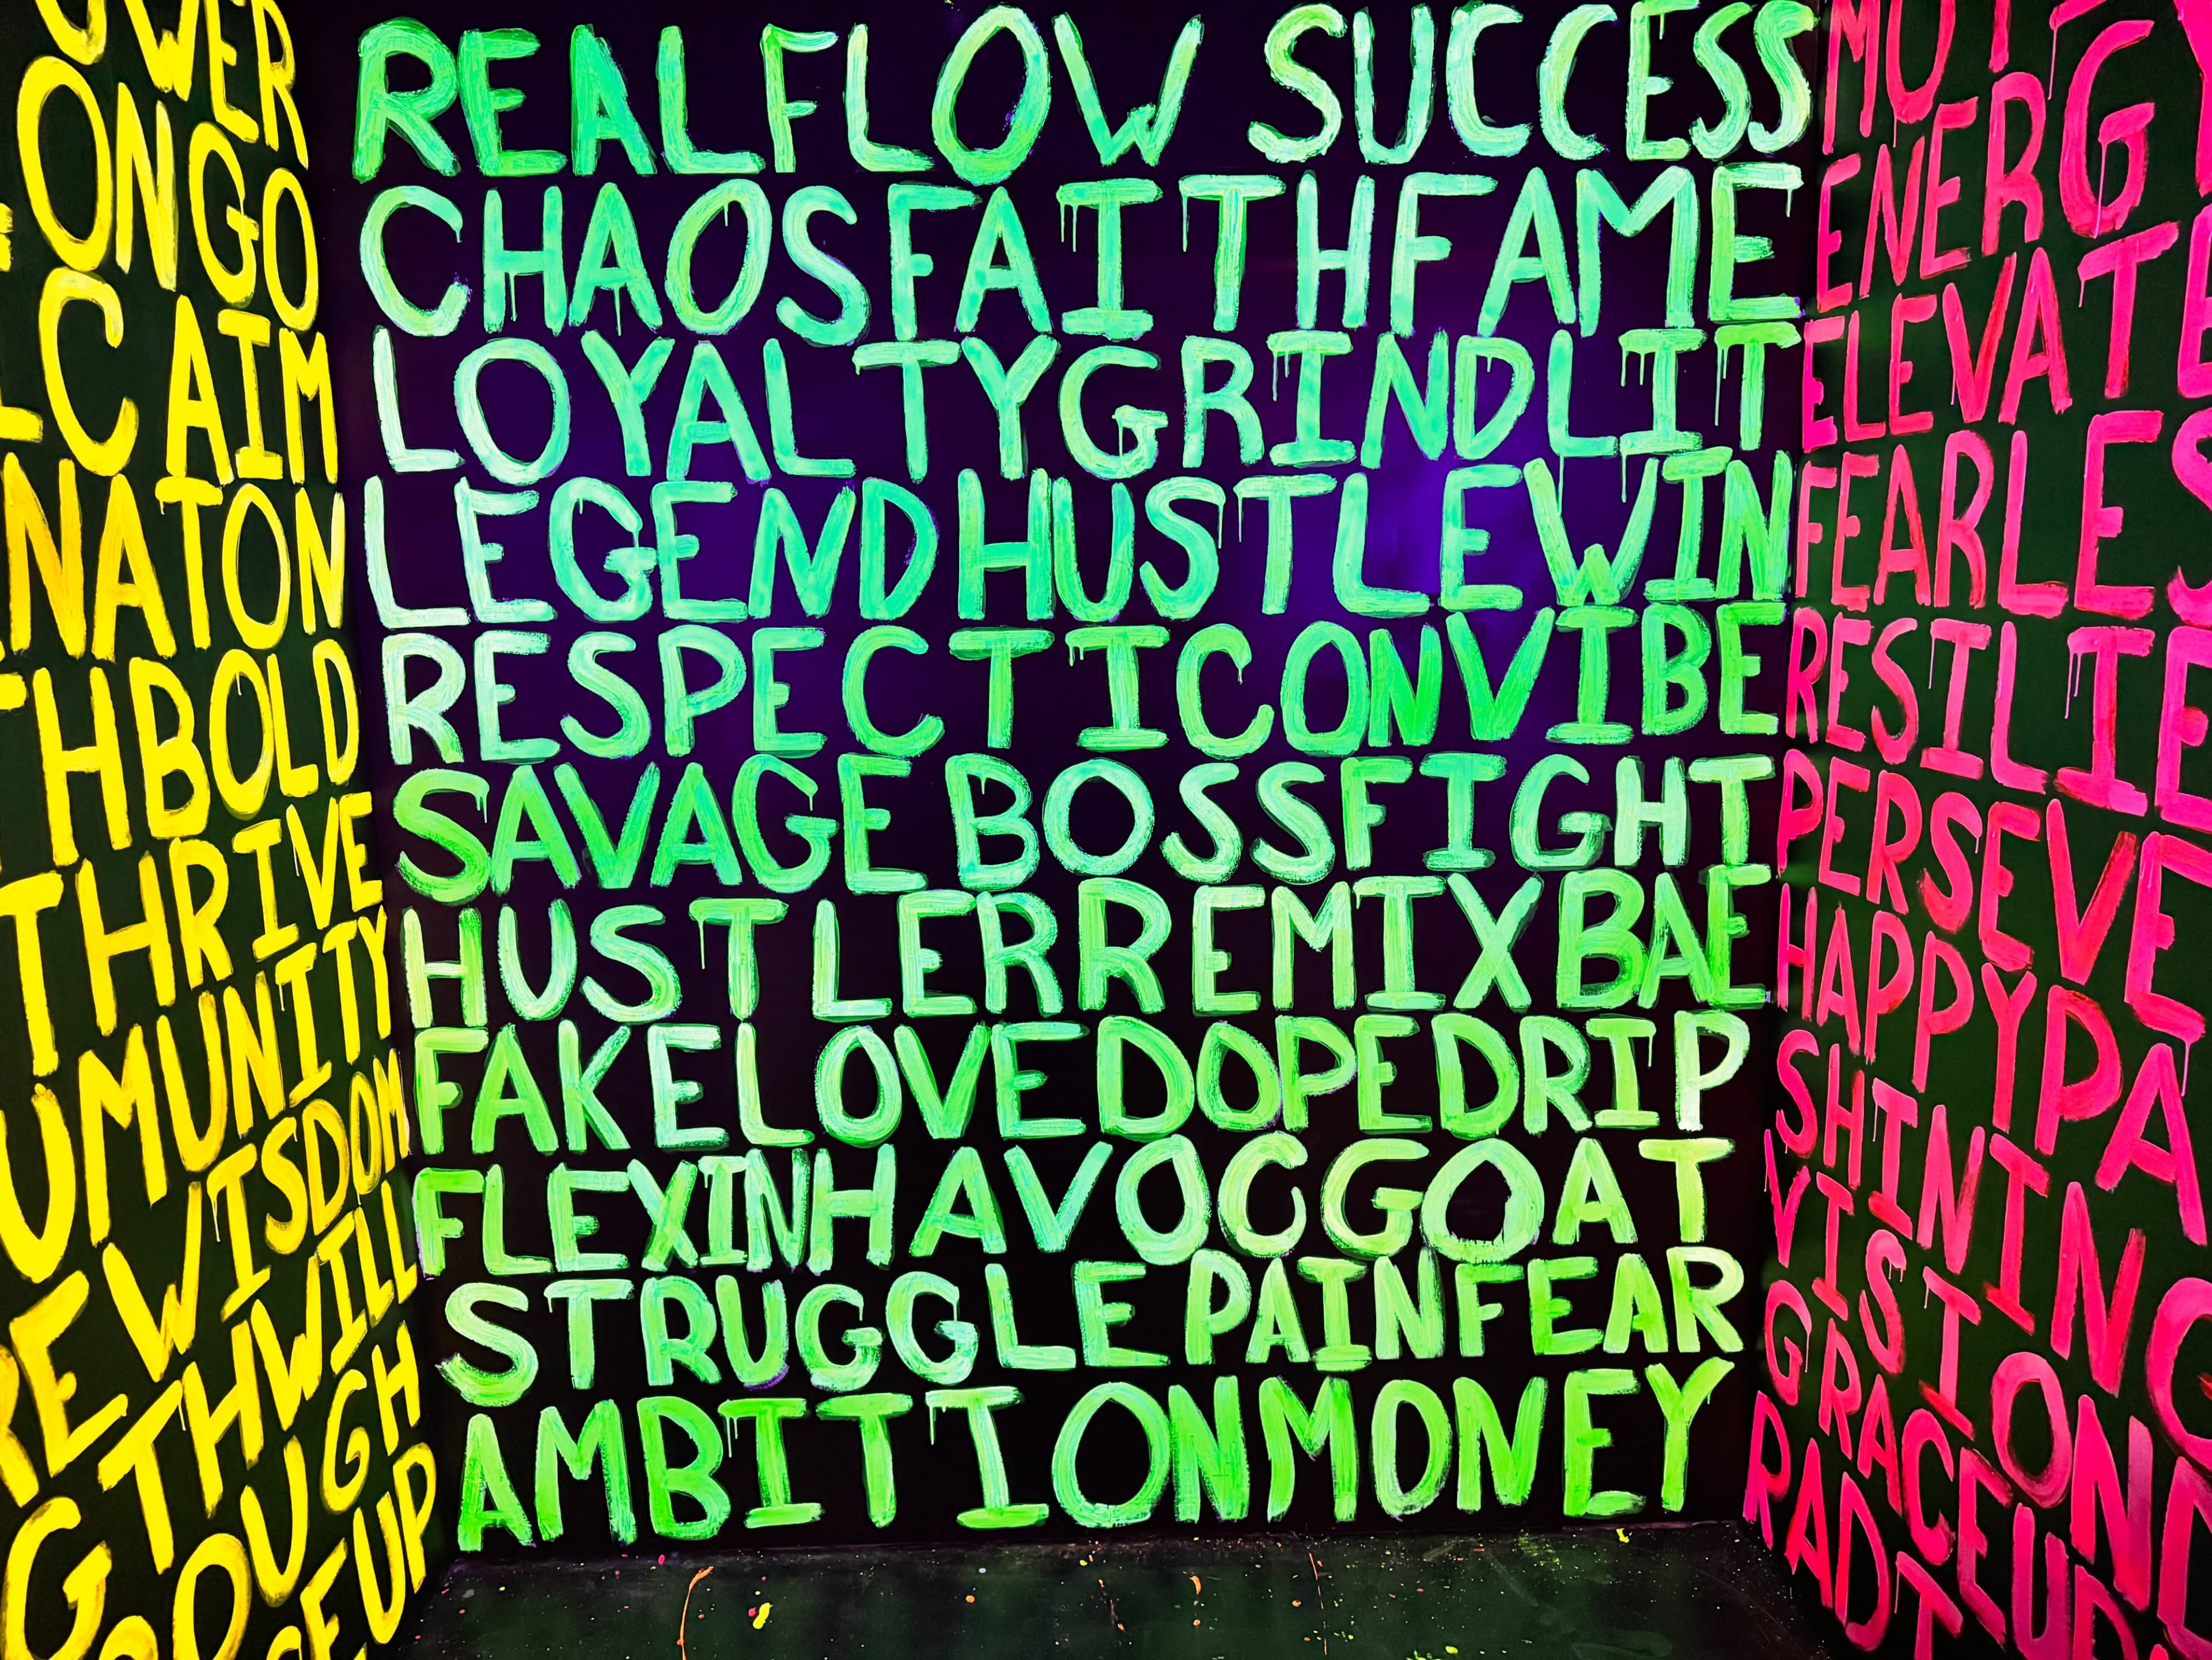 ONGO
AIM
BOLD
THRIVE
WISDOM
WILL
UP
REALFLOW SUCCESS
CHAOSFAITHFAME
LOYALTYGRINDLIT
LEGENDHUSTLEWIN
RESPECTICONVIBE
SAVAGE BOSSFIGHT
HUSTLERREMIXBAE
FAKELOVEDOPEDRIP
FLEXINHAVOCGOAT
STRUGGLE PAINFEAR
AMBITIONMONEY
ENERGY
ELEVATE
FEARLES
RESILIE
PERSEVE
HAPPYPA
SHINING
VISION
GRACE